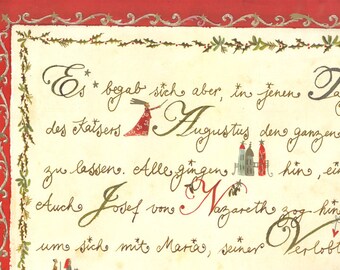 Es begab sich aber, in jenen
des Kaisers Augustus den ganzen
zu lassen. Alle gingen hin,
Auch Josef von Nazareth zog
um sich mit Maria, seiner